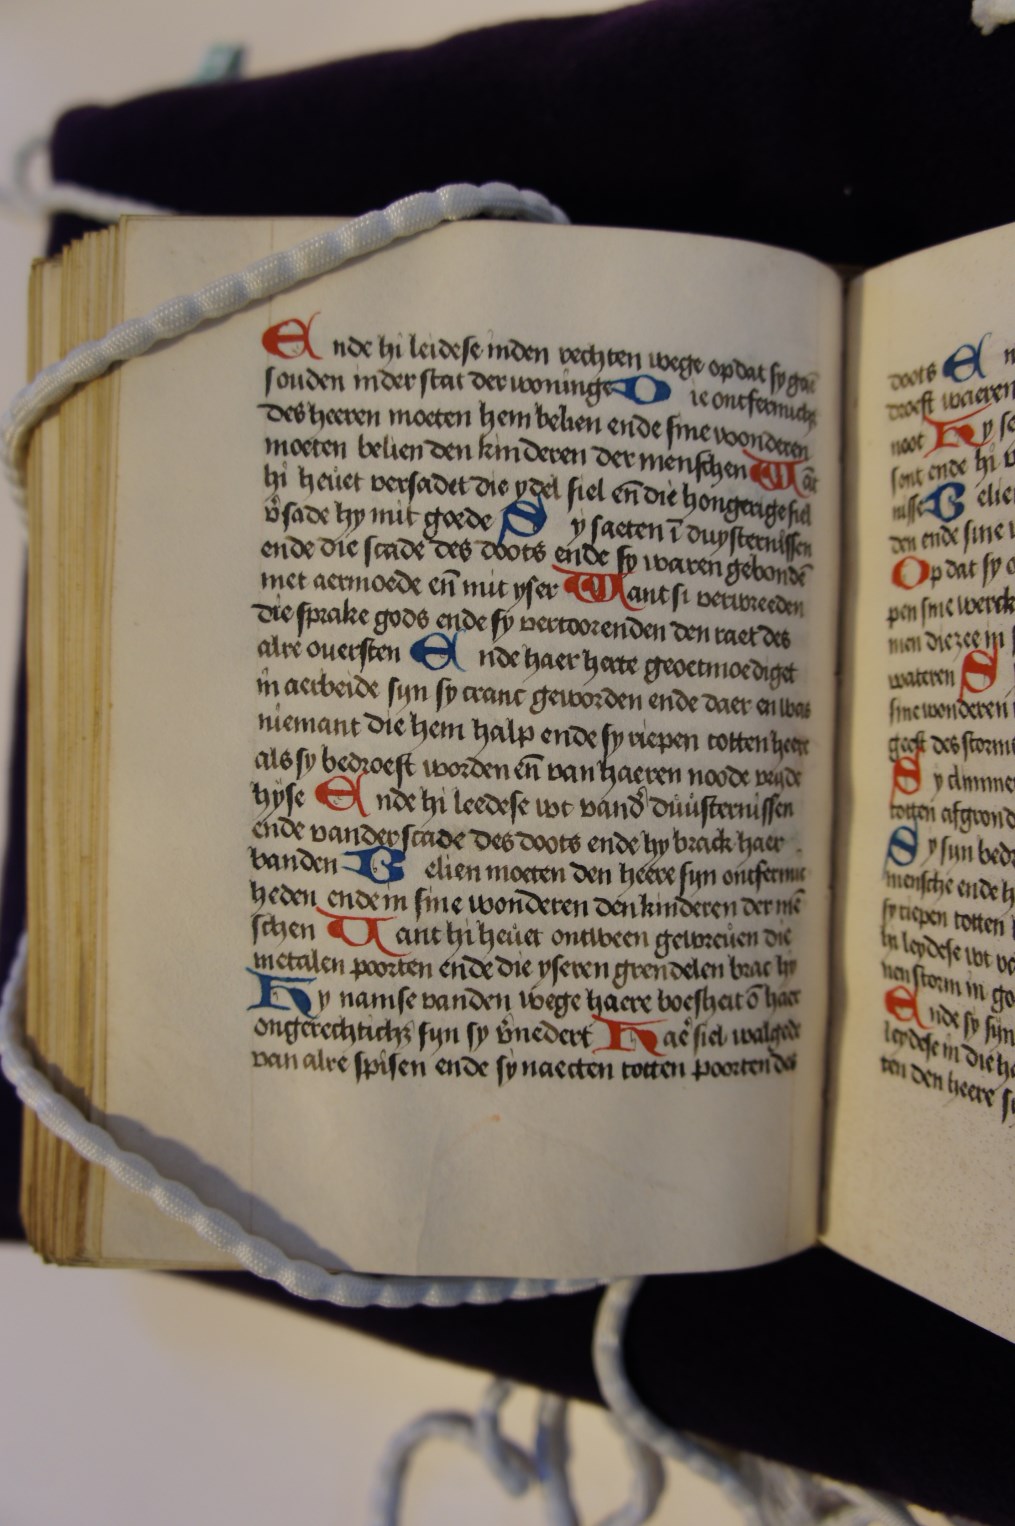 Ende hi leidese inden rechten wege op dat sy gaē
souden inder stat der woninge Die ontfermich
des heeren moeten hem belien ende sine wonderen
moeten belien den kinderen der menschen Wāt
hi heuet versadet die ydel siel eñ die hongerige siel
v̄sade hy mit goede Sy saeten ī duysternissen
ende die scade des doots ende sy waren gebondē
met aermoede eñ mit yser Want si verwreeden
die sprake gods ende sy vertoorenden den raet des
alre ouersten Ende haer herte geoetmoediget
in aerbeide syn sy cranc geworden ende daer en was
niemant die hem halp ende sy riepen totten heere
als sy bedroeft worden eñ van haeren noode vrijde
hyse Ende hi leedese wt vandʼ duusternissen
ende vander scade des doots ende hy brack haer
banden Belien moeten den heere syn ontfermic
heden ende in sine wonderen den kinderen der mē
schen Want hi heuet ontween gewreuen die
metalen poorten ende die yseren grendelen brac hy
Hy namse vanden wege haere boesheit ō haer
ongerechtichz syn sy v̄nedert Haeʼ siel walgede
van alre spisen ende sy naecten totten poorten des
doots En
droeft waeren
noot Hy se
sont ende hi v
nisse Belie
den ende sine w
Op dat sy o
pen sine werck
men die zee in s
wateren S
sine wonderen
geest des storm
Sy climme
totten afgrond
Sy syn bedr
mensche ende h
sy riepen totten
hi leydese wt v
nen storm in go
Ende sy syn
leydese in die ha
ten den heere s